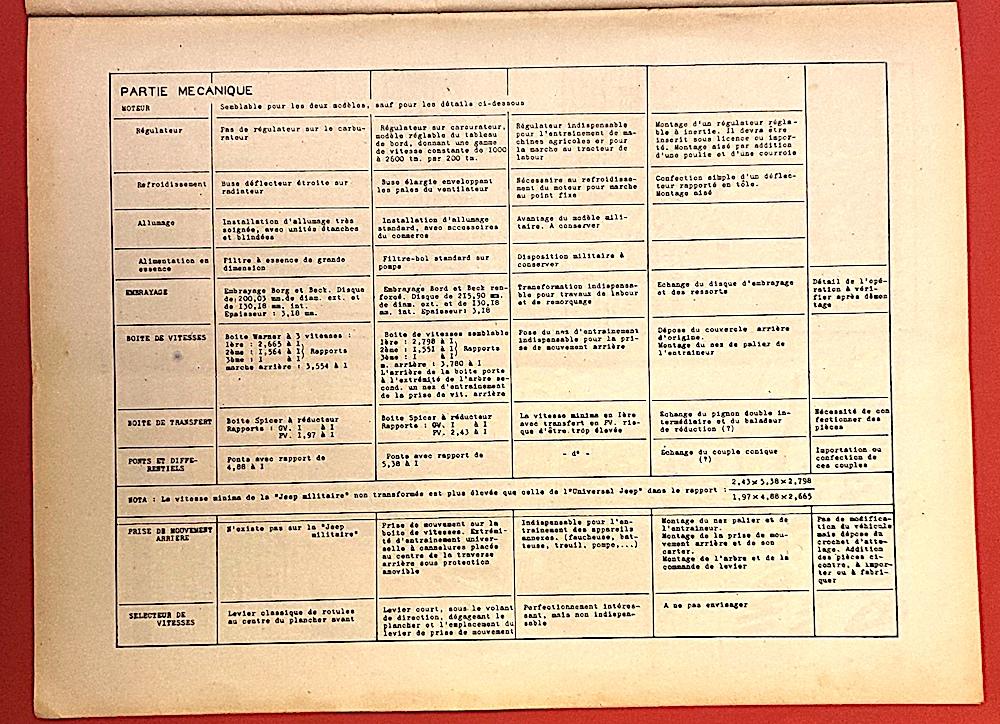 PARTIE MECANIQUE
MOTEUR
Semblable pour les deux modèles, sauf pour les détails ci-dessous
Régulateur
Pas de régulateur sur le carbu-
rateur
Régulateur sur carcurateur,
modèle réglable du tableau
de bord, donnant une gamme
de vitesse constante de 1000
à 2600 tm. par 200 tm.
Régulateur indispensable
pour l'entrainement de ma-
chines agricoles et pour
la marche au tracteur de
labour
Montage d'un régulateur régla-
ble à inertie. Il devra être
inscrit sous licence ou impor-
té. Montage aisé par addition
d'une poulie et d'une courroie
Refroidissement
Buse déflecteur étroite sur
radiateur
Buse élargie enveloppant
les pales du ventilateur
Nécessaire au refroidisse-
ment du moteur pour marche
au point fixe
Confection simple d'un déflec-
teur rapporté en tôle.
Montage aisé
Allumage
Installation d'allumage très
soignée, avec unités étanches
et blindées
Installation d'allumage
standard, avec accessoires
du commerce
Avantage du modèle mili-
taire. A conserver
Alimentation en
essence
Filtre à essence de grande
dimension
Filtre-bol standard sur
pompe
Disposition militaire à
conserver
EMBRAYAGE
Embrayage Borg et Beck. Disque
de 200,03 mm.de diam. ext. et
de I30,I8 mm. int.
Epaisseur : 3,I8 mm.
Embrayage Bord et Beck ren-
forcé. Disque de 2I5,90 mm.
de diam. ext. et de I30,I8
mm. int. Epaisseur: 3,I8
Transformation indispensa-
ble pour travaux de labour
et de remorquage
Echange du disque d'embrayage
et des ressorts
Détail de l'opé-
ration à véri-
fier après démon
tage
BOITE DE VITESSES
Boite Warner à 3 vitesses :
1ère : 2,665 à I
2ème : I,564 à I Rapports
3ème : I à I
marche arrière : 3,554 à I
Boite de vitesses semblable
1ère : 2,798 à I
2ème : I,55I à I Rapports
3ème : I à I
m. arrière : 3,780 à I
L'arrière de la boite porte
à l'extrémité de l'arbre se-
cond. un nez d'entrainement
de la prise de vit. arrière
Pose du nez d'entrainement
indispensable pour la pri-
se de mouvement arrière
Dépose du couvercle arrière
d'origine.
Montage du nez de palier de
l'entraineur
BOITE DE TRANSFERT
Boite Spicer à réducteur
Rapports : GV. I à I
PV. I,97 à I
Boite Spicer à réducteur
Rapports : GV. I à I
PV. 2,43 à I
La vitesse minima en Ière
avec transfert en PV. ris-
que d'être trop élevée
Echange du pignon double in-
termédiaire et du baladeur
de réduction (?)
Nécessité de con
fectionner des
pièces
PONTS ET DIFFE-
RENTIELS
Ponts avec rapport de
4,88 à I
Ponts avec rapport de
5,38 à I
- d° -
Echange du couple conique
(?)
Importation ou
confection de
ces couples
NOTA : La vitesse minima de la "Jeep militaire" non transformée est plus élevée que celle de l'"Universal Jeep" dans le rapport : 2,43 x 5,38 x 2,798
1,97 x 4,88 x 2,665
PRISE DE MOUVEMENT
ARRIERE
N'existe pas sur la "Jeep
militaire"
Prise de mouvement sur la
boite de vitesses. Extrémi-
té d'entrainement univer-
selle à cannelures placée
au centre de la traverse
arrière sous protection
amovible
Indispensable pour l'en-
trainement des appareils
annexes. (faucheuse, bat-
teuse, treuil, pompe,...)
Montage du nez palier et de
l'entraineur.
Montage de la prise de mou-
vement arrière et de son
carter.
Montage de l'arbre et de la
commande de levier
Pas de modifica-
tion du véhicule
mais dépose du
crochet d'atte-
lage. Addition
des pièces ci-
contre, à impor-
ter ou à fabri-
quer
SELECTEUR DE
VITESSES
Levier classique de rotules
au centre du plancher avant
Levier court, sous le volant
de direction, dégageant le
plancher et l'emplacement du
levier de prise de mouvement
Perfectionnement intéres-
sant, mais non indispen-
sable
A ne pas envisager